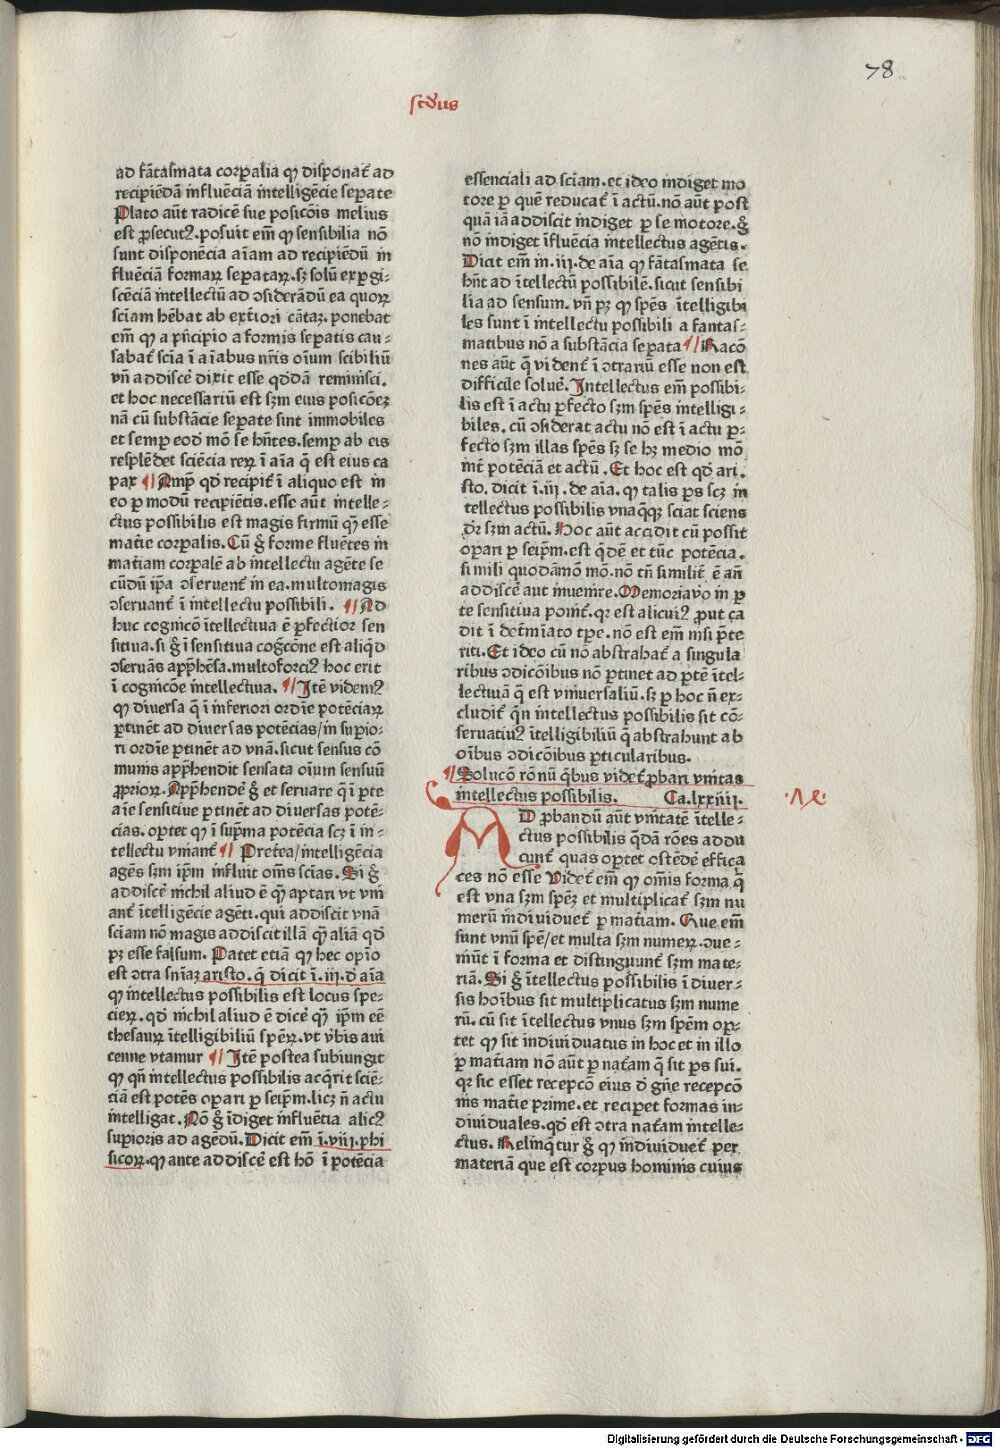 78
scd̄us
ad fātasmata corꝑalia qꝫ disponat᷑ ad
recipiēdā influēciā intelligēcie seꝑate
Plato aūt radicē sue posicōis melius
est ꝓsecutꝰ. posuit eīm qꝫ sensibilia nō
sunt disponēcia aīam ad recipiēdū in
fluēciā formaꝝ seꝑataꝝ. sꝫ solū exꝑgi⸗
scēciā intellectū ad ↄsiderādū ea quoꝝ
sciam hēbat ab ext̄iori cātaꝫ. ponebat
eīm qꝫ a pn̄cipio a formis seꝑatis cau⸗
sabat᷑ scīa ī aīabus nr̄is oīum scibiliū
vn̄ addisce᷑ dixit esse qd̄dā reminisci.
et hoc necessariū est sꝫm eius posicōeꝫ
nā cū substācie seꝑate sint immobiles
et semꝑ eod̄ mō se hn̄tes. semꝑ ab eis
resplēdet sciēcia reꝝ ī aīa q̄ est eius ca
pax ¶ Ampl̄ qd̄ recipit᷑ ī aliquo est in
eo ꝑ modū recipiētis. esse aūt intelle⸗
ctus possibilis est magis firmū qꝫ̄ esse
mat̄ie corꝑalis. Cū g̊ forme fluētes in
mat̄iam corꝑalē ab intellectu agēte se
cūdū ip̄a ↄseruent᷑ in ea. multomagis
ↄseruant᷑ ī intellectu possibili. ¶ Ad
huc cognicō ītellectiua ē ꝑfectior sen
sitiua. si g̊ ī sensitiua cogc̄one est aliqd̄
ↄseruās app̄hēsa. multoforciꝰ hoc erit
ī cognicōe intellectiua. ¶ Itē videmꝰ
qꝫ diuersa q̄ ī inferiori ordīe potēciaꝝ
ꝑtinēt ad diuersas potēcias/ in suꝑio⸗
ri ordīe ꝑtinēt ad vnā. sicut sensus cō
munis app̄hendit sensata oīum sensuū
ꝓprioꝝ. App̄hende᷑ g̊ et seruare q̄ ī ꝑte
aīe sensitiue ꝑtinēt ad diuersas potē⸗
cias. oꝑtet qꝫ ī sup̄ma potēcia scꝫ ī in⸗
tellectu vniant᷑ ¶ Pret̄ea/ intelligēcia
agēs sꝫm ip̄m influit om̄s scīas. Si g̊
addisce᷑ nichil aliud ē qꝫ̄ aptari vt vni
ant᷑ ītelligēcie agēti. qui addiscit vnā
sciam nō magis addiscit illā qꝫ̄ aliā qd̄
pꝫ esse falsum. Patet etiā qꝫ hec opīo
est ↄtra snīaꝫ aristo. q̄ dicit ī. iii. d̄ aīa
qꝫ intellectus possibilis est locus spe⸗
cieꝝ. qd̄ nichil aliud ē dice᷑ qꝫ̄ ip̄m eē
thesauꝝ ītelligibiliū spēꝝ. vt v̄bis aui
cenne vtamur ¶ Itē postea subiungit
qꝫ qn̄ intellectus possibilis acq̄rit sciē⸗
ciā est potēs oꝑari ꝑ seip̄m. licꝫ n̄ actu
intelligat. Nō g̊ īdiget influētia alicꝰ
suꝑioris ad agēdū. Dicit eīm ī. viii. phi
sicoꝝ. qꝫ ante addisce᷑ est hō ī potēcia
essenciali ad scīam. et ideo indiget mo
tore ꝑ quē reducat᷑ ī actū. nō aūt post
quā iā addiscit indiget ꝑ se motore. g̊
nō indiget īfluēcia intellectus agētis.
Dicit eīm in. iii. de aīa qꝫ fātasmata se
hn̄t ad ītellectū possibilē. sicut sensibi
lia ad sensum. vn̄ pꝫ qꝫ spēs ītelligibi
les sunt ī intellectu possibili a fantas⸗
matibus nō a substācia seꝑata ¶ Racō
nes aūt q̄ vident᷑ ī ↄtrariū esse non est
difficile solue᷑. Intellectus eīm possibi⸗
lis est ī actu ꝑfecto sꝫm spēs intelligi⸗
biles. cū ↄsiderat actu nō est ī actu ꝑ⸗
fecto sꝫm illas spēs sꝫ se hꝫ medio mō
int᷑ potēciā et actū. Et hoc est qd̄ ari⸗
sto. dicit ī. iii. de aīa. qꝫ talis ꝑs scꝫ in
tellectus possibilis vnaqqꝫ sciat sciens
d̄r sꝫm actū. Hoc aūt accidit cū possit
oꝑari ꝑ seip̄m. est qd̄ē et tūc potēcia.
simili quodāmō mō. nō tn̄ similit᷑ ē an̄
addisce᷑ aut inuenire. Memoria v̊o in ꝑ
te sensitiua ponit᷑. qꝛ est alicuiꝰ ꝓut ca
dit ī det᷑mīato tꝑe. nō est eīm nisi p̄te
riti. Et ideo cū nō abstrahat᷑ a singula
ribus ↄdicōibus nō ꝑtinet ad ꝑtē ītel⸗
lectiuā q̄ est vniuersaliū. sꝫ ꝑ hoc n̄ ex⸗
cludit᷑ qn̄ intellectus possibilis sit cō⸗
seruatiuꝰ ītelligibiliū q̄ abstrahunt ab
oībus ↄdicōibus ꝑticularibus.
¶ Solucō rōnū qͥbus videt᷑ ꝓbari vnitas
intellectus possibilis. Ca. lxxiiii.
AD ꝓbandū aūt vnitatē ītelle⸗
ctus possibilis qd̄ā rōes addu
cunt᷑ quas oꝑtet ostēde᷑ effica
ces nō esse Videt᷑ eīm qꝫ om̄is forma q̄
est vna sꝫm spēꝫ et multiplicat᷑ sꝫm nu
merū indiuiduet᷑ ꝑ mat̄iam. Que eīm
sunt vnū spē/ et multa sꝫm numeꝝ. ↄue⸗
niūt ī forma et distinguunt᷑ sꝫm mate⸗
riā. Si g̊ ītellectus possibilis ī diuer⸗
sis hoībus sit multiplicatus sꝫm nume
rū. cū sit ītellectus vnus sꝫm spēm oꝑ⸗
tet qꝫ sit indiuiduatus in hoc et in illo
ꝑ mat̄iam nō aūt ꝑ nat̄am q̄ sit ꝑs sui.
qꝛ sic esset recepcō eius d̄ gn̄e recepcō
nis mat̄ie prime. et reciꝑet formas in⸗
diuiduales. qd̄ est ↄtra nat̄am intelle⸗
ctus. Relinqͥtur g̊ qꝫ indiuiduet᷑ per
materiā que est corpus hominis cuius